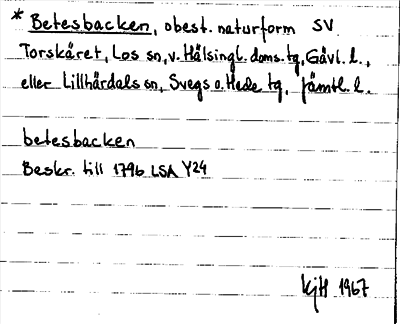 * Betesbacken, obest. naturform SV
Torskäret, Los sn, v. Hälsingl. doms. tg, Gävl. l.,
eller Lillhärdals sn, Svegs o. Hede tg, Jämtl. l.
betesbacken
Beskr. till 1796 LSA Y24
KjH 1967